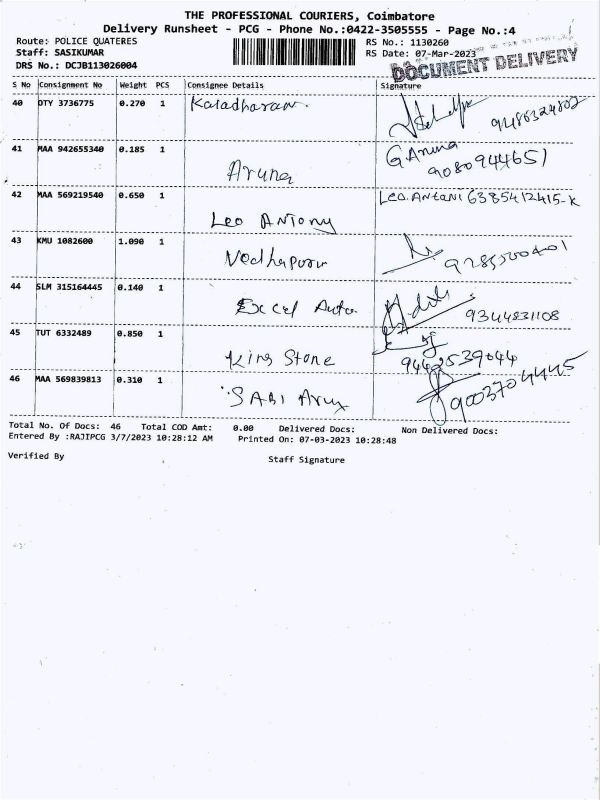 THE PROFESSIONAL COURIERS, Coimbatore
Delivery Runsheet - PCG - Phone No.:0422-3505555 - Page No.:4
Route: POLICE QUATERES RS No.: 1130260
Staff: SASIKUMAR RS Date: 07-Mar-2023
DRS No.: DCJB113026004 DOCUMENT DELIVERY
S No Consignment No Weight PCS Consignee Details Signature
40 DTY 3736775 0.270 1 Kaladharan 9486324802
41 MAA 942655340 0.185 1 Aruna G Aruna 9080944651
42 MAA 569219540 0.650 1 Leo Antony Leo. Antoni 6385412415-K
43 KMU 1082600 1.090 1
44 SLM 315164445 0.140 1 Excel Auto 9344831108
45 TUT 6332489 0.850 1 King Stone 9442539044
46 MAA 569839813 0.310 1 SABI 9003704445
Total No. Of Docs: 46 Total COD Amt: 0.00 Delivered Docs: Non Delivered Docs:
Entered By :RAJIPCG 3/7/2023 10:28:12 AM Printed On: 07-03-2023 10:28:48
Verified By Staff Signature